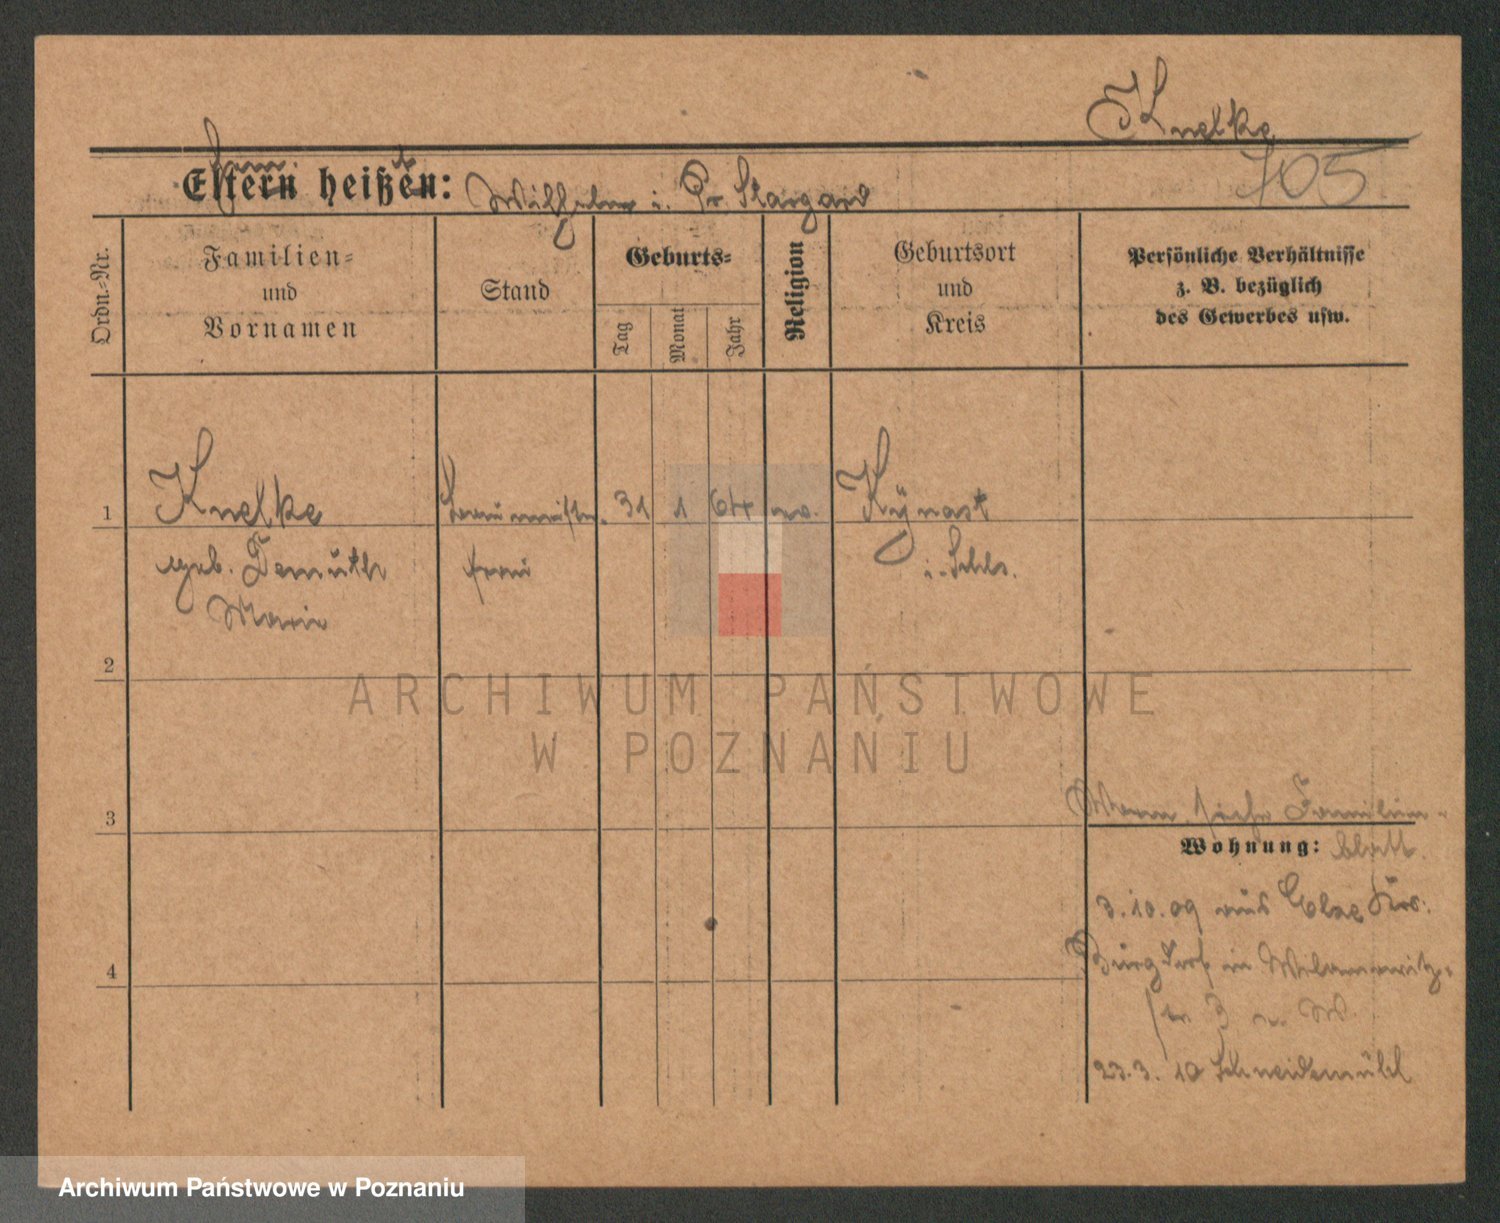 Knelke
705
Eltern heißen: Wilhelm i. Pr. Stargard
Ordn.-Nr.
Familien-
und
Vornamen
Stand
Geburts-
Tag
Monat
Jahr
Religion
Geburtsort
und
Kreis
Persönliche Verhältnisse
z. B. bezüglich
des Gewerbes usw.
1
Knelke
31 1 64
Kynast
geb. Demuth
frau
i. Schles.
Marie
2
3
Mann siehe Familien-
Wohnung: blatt.
3.10.09 aus
Burgdorf in
4
23.3.10 Schneidemühl
ARCHIWUM PAŃSTWOWE
W POZNANIU
Archiwum Państwowe w Poznaniu